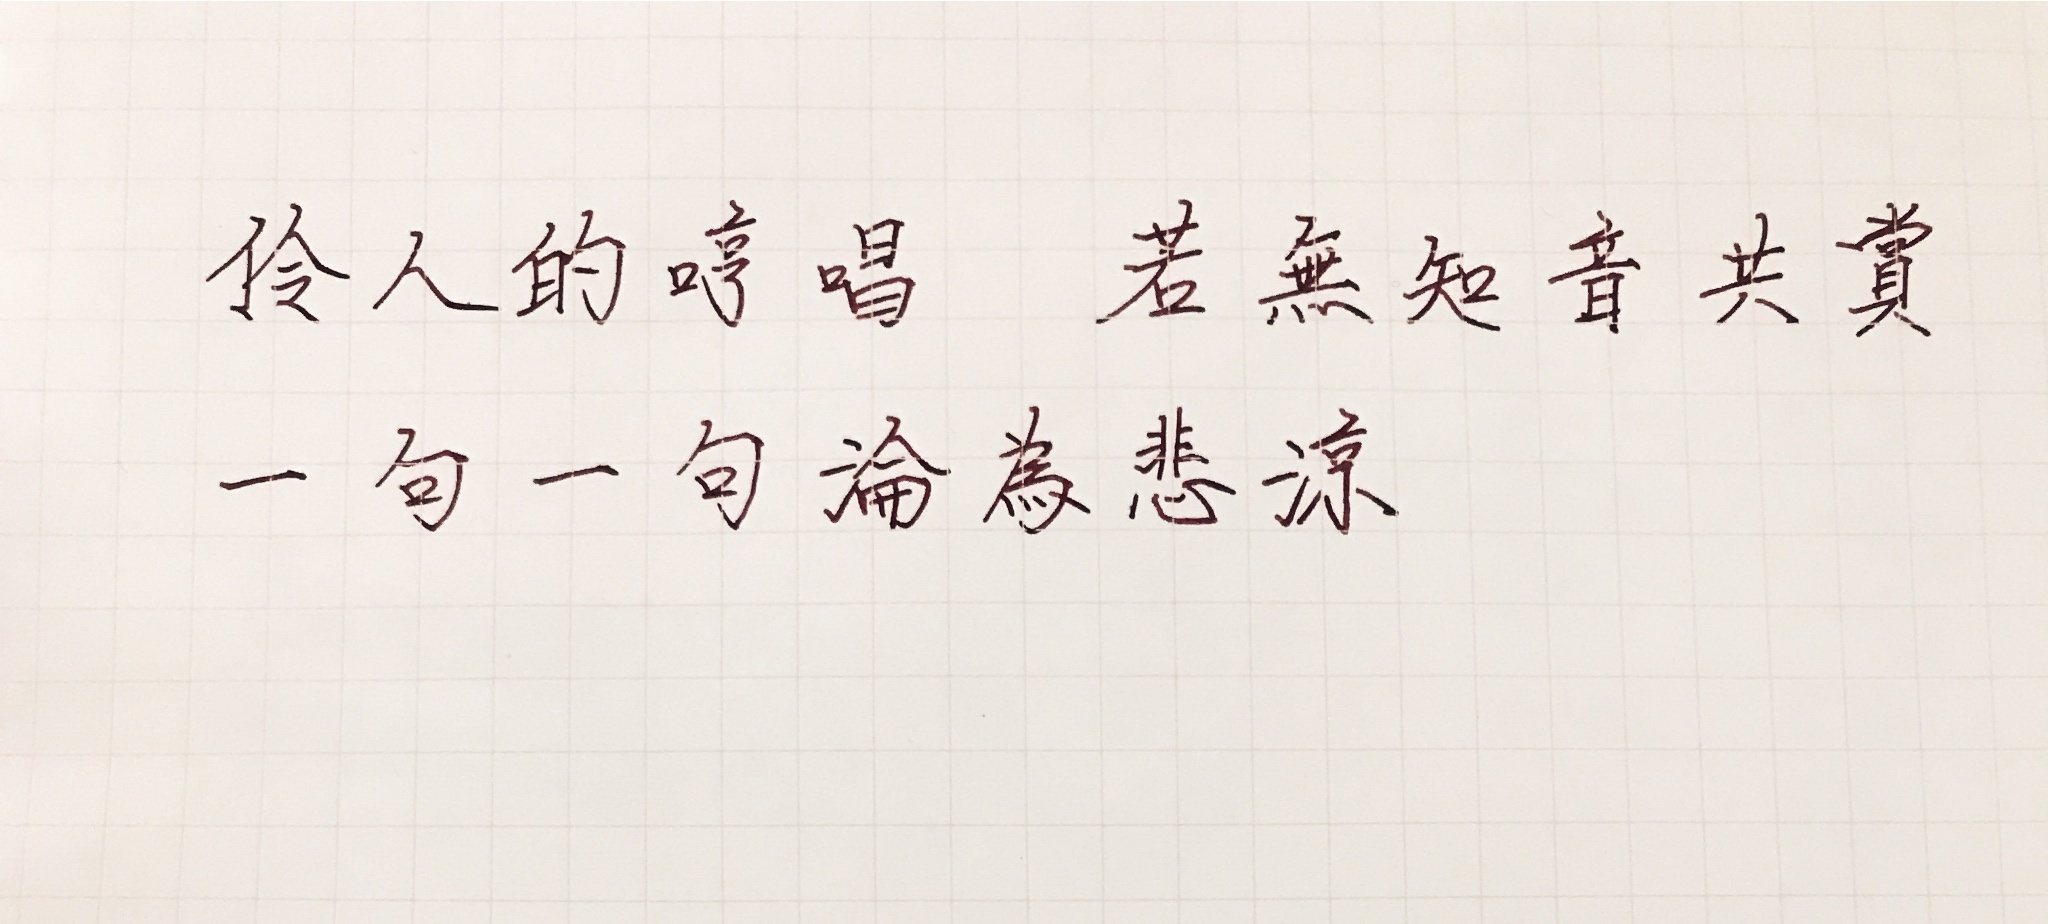 伶人的哼唱　若無知音共賞
一句一句淪為悲涼